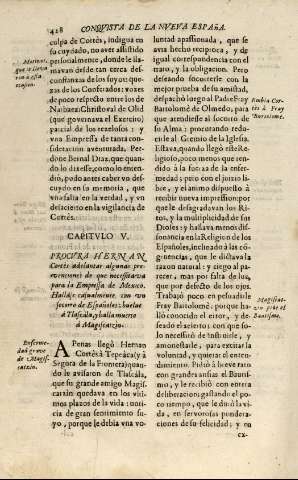 428 CONQVISTA DE LA NVEVA ESPAñA.
culpa de Cortès, indigna en
su cuydado, no aver assistido
personalmente, donde le lla-
mavan desde tan cerca des-
confianças de los suyos: que-
xas de los Confederados: vozes
de poco respeto entre los de
Narbaez: Christoval de Olid
(que governava el Exercito)
parcial de los rezelosos: y
vna Empressa de tanta con-
sideracion aventurada. Per-
done Bernal Diaz, que quan-
do lo diesse, como lo enten-
diò, pudo antes caber vn des-
cuydo en su memoria, que
vna falta en la verdad, y vn
desacierto en la vigilancia de
Cortès.
CAPITVLO V.
PROCVRA HERNAN
Cortès adelantar algunas pre-
venciones de que necessitava
para la Empressa de Mexico.
Hallase casualmente con vn
socorro de Españoles: buelve
à Tlascàla, y halla muerto
à Magiscatzin.
Enferme-
dad grave
de Magis-
catzin.
APenas llegò Hernan
Cortès à Tepeàca (y à
Segura de la Frontera) quan-
do le avisaron de Tlascàla,
que su grande amigo Magis-
catzin quedava en los vlti-
mos plazos de la vida: noti-
cia de gran sentimiento su-
yo, porque le debia vna vo-
luntad apassionada, que se
avia hecho reciproca, y de
igual correspondencia con el
trato, y la obligacion. Pero
deseando socorrerle con la
mejor prueba de su amistad,
despachò luego al Padre Fray
Bartolomè de Olmedo, para
que atendiesse al socorro de
su Alma: procurando redu-
cirle al Gremio de la Iglesia.
Estava, quando llegò este Re-
ligioso, poco menos que ren-
dido à la fuerza de la enfer-
medad; pero con el juizio li-
bre, y el animo dispuesto à
recibir nueva impression: por
que le desagradavan los Ri-
tos, y la multiplicidad de sus
Dioses: y hallava menos dis-
sonancia en la Religion de los
Españoles, inclinado à las con-
gruencias, que le dictava la
razon natural: y ciego al pa-
recer, mas por falta de luz,
que por defecto de los ojos.
Trabajò poco en persuadile
Fray Bartolomè: porque ha-
llò conocido el error, y de-
seado el acierto: con que so-
lo necessitò de instruirle, y
amonestarle, para excitar la
voluntad, y quietar el enten-
dimiento. Pidiò à breve rato
con grandes ansias el Bautis-
mo, y le recibiò con entera
deliberacion; gastando el po-
co tiempo, que le durò la vi-
da, en servorosas pondera-
ciones de su felicidad; y en
ex-